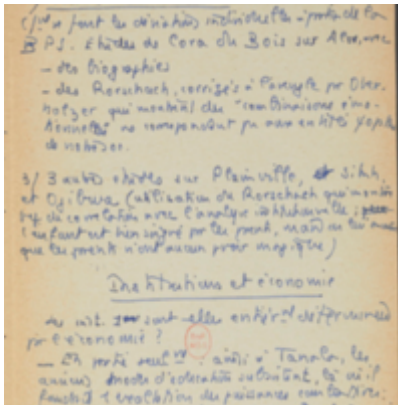 font les déviations individuelles à partir de la
BPS. Etudes de Cora du Bois sur Alor, avec
– des biographies
– des Rorschach, corrigés à l'aveugle par Ober-
holzer qui montrent des "combinaisons émo-
tionnelles" ne correspondant pas aux entités
de
3/ 3 autres études sur Plainville, Sikh,
et Ojibwa (utilisation du Rorschach qui montre
de corrélation avec l'analyse institutionnelle ;
l'enfant est bien soigné par les parents, mais
que les parents n'ont aucun pouvoir magique)
Institutions et économie
Les inst. sont-elles entièr^nt déterminées
par l'économie ?
– En partie seul^nt : ainsi à Tanala, les
anciens modes d'éducation subsistent, là où il
l'évolution des puissances